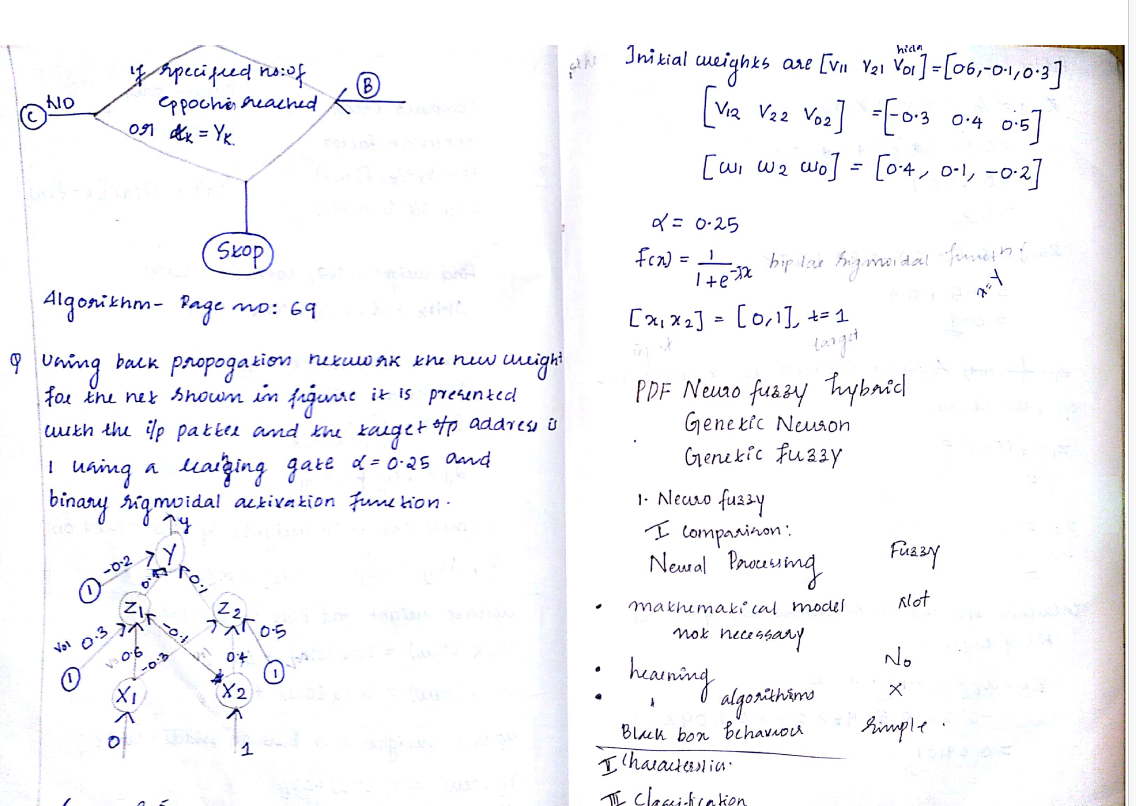 If specified no: of
eppoches reached
or tk = Yk.
NO
C
B
Stop
Algorithm - Page no: 69
Q Using back propogation network the new weight
for the net shown in figure it is presented
with the i/p patter and the target o/p address is
1 using a learning gate α = 0.25 and
binary sigmoidal activation function.
y
Y
-0.2
0.4
0.1
1
Z1
Z2
V01 0.3
-0.1
0.5
0.6
-0.3
0.4
1
1
X1
X2
0
1
Initial weights are [V11 V21 V01] = [0.6, -0.1, 0.3]
[V12 V22 V02] = [-0.3 0.4 0.5]
[w1 w2 w0] = [0.4, 0.1, -0.2]
α = 0.25
f(x) = 1/1+e^-λx bipolar sigmoidal function
[x1 x2] = [0,1], t = 1
target
PDF Neuro fuzzy hybrid
Genetic Neuron
Genetic fuzzy
1. Neuro fuzzy
I comparison:
Neural Processing Fuzzy
• mathematical model Not
not necessary
• learning No
• " algorithms X
Black box behaviour Simple.
II Characteristics.
III Classification